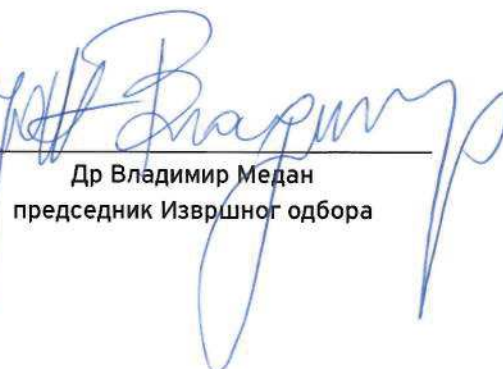 Др Владимир Медан
председник Извршног одбора